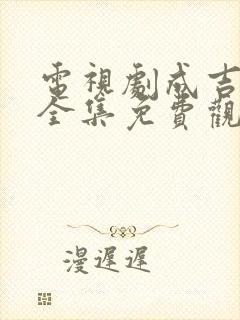 電視劇成吉
全集免費觀
漫遲遲